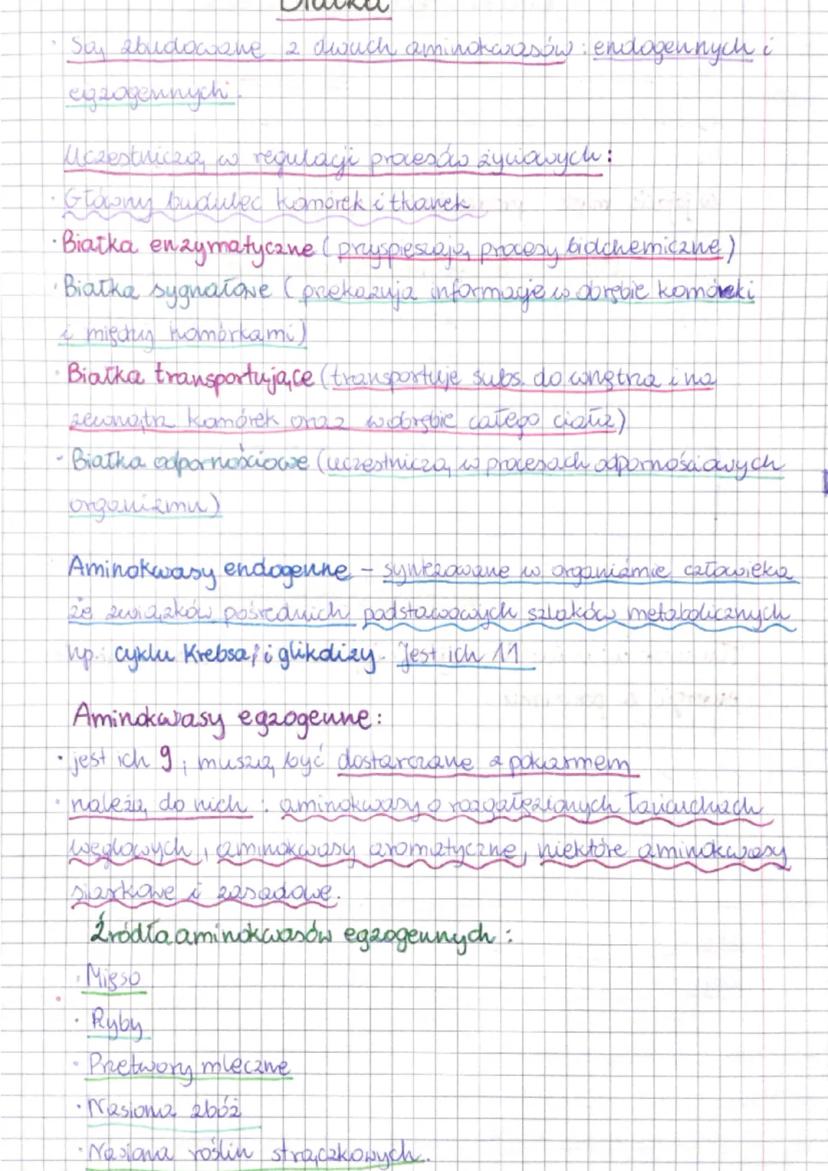 Białka
· Są zbudowane z dwuch aminokwasów: endogennych i
egzogennych.
Uczestniczą w regulacji procesów życiowych:
· Główny budulec komórek i tkanek
· Białka enzymatyczne (przyspieszają procesy biochemiczne)
· Białka sygnałowe (przekazują informacje w obrębie komórki
i między komórkami)
· Białka transportujące (transportuje subs. do wnętrza i na
zewnątrz komórek oraz w obrębie całego ciała)
- Białka odpornościowe (uczestniczą w procesach odpornościowych
organizmu)
Aminokwasy endogenne - syntezowane w organizmie człowieka
ze związków pośrednich podstawowych szlaków metabolicznych
np. cyklu Krebsa, i glikolizy. Jest ich 11
Aminokwasy egzogenne:
· jest ich 9, muszą być dostarczane z pokarmem
· należą do nich: aminokwasy o rozgałęzionych łańcuchach
węglowych, aminokwasy aromatyczne, niektóre aminokwasy
siarkowe i zasadowe.
Źródła aminokwasów egzogennych:
· Mięso
· Ryby
· Przetwory mleczne
· Nasiona zbóż
· Nasiona roślin strączkowych.